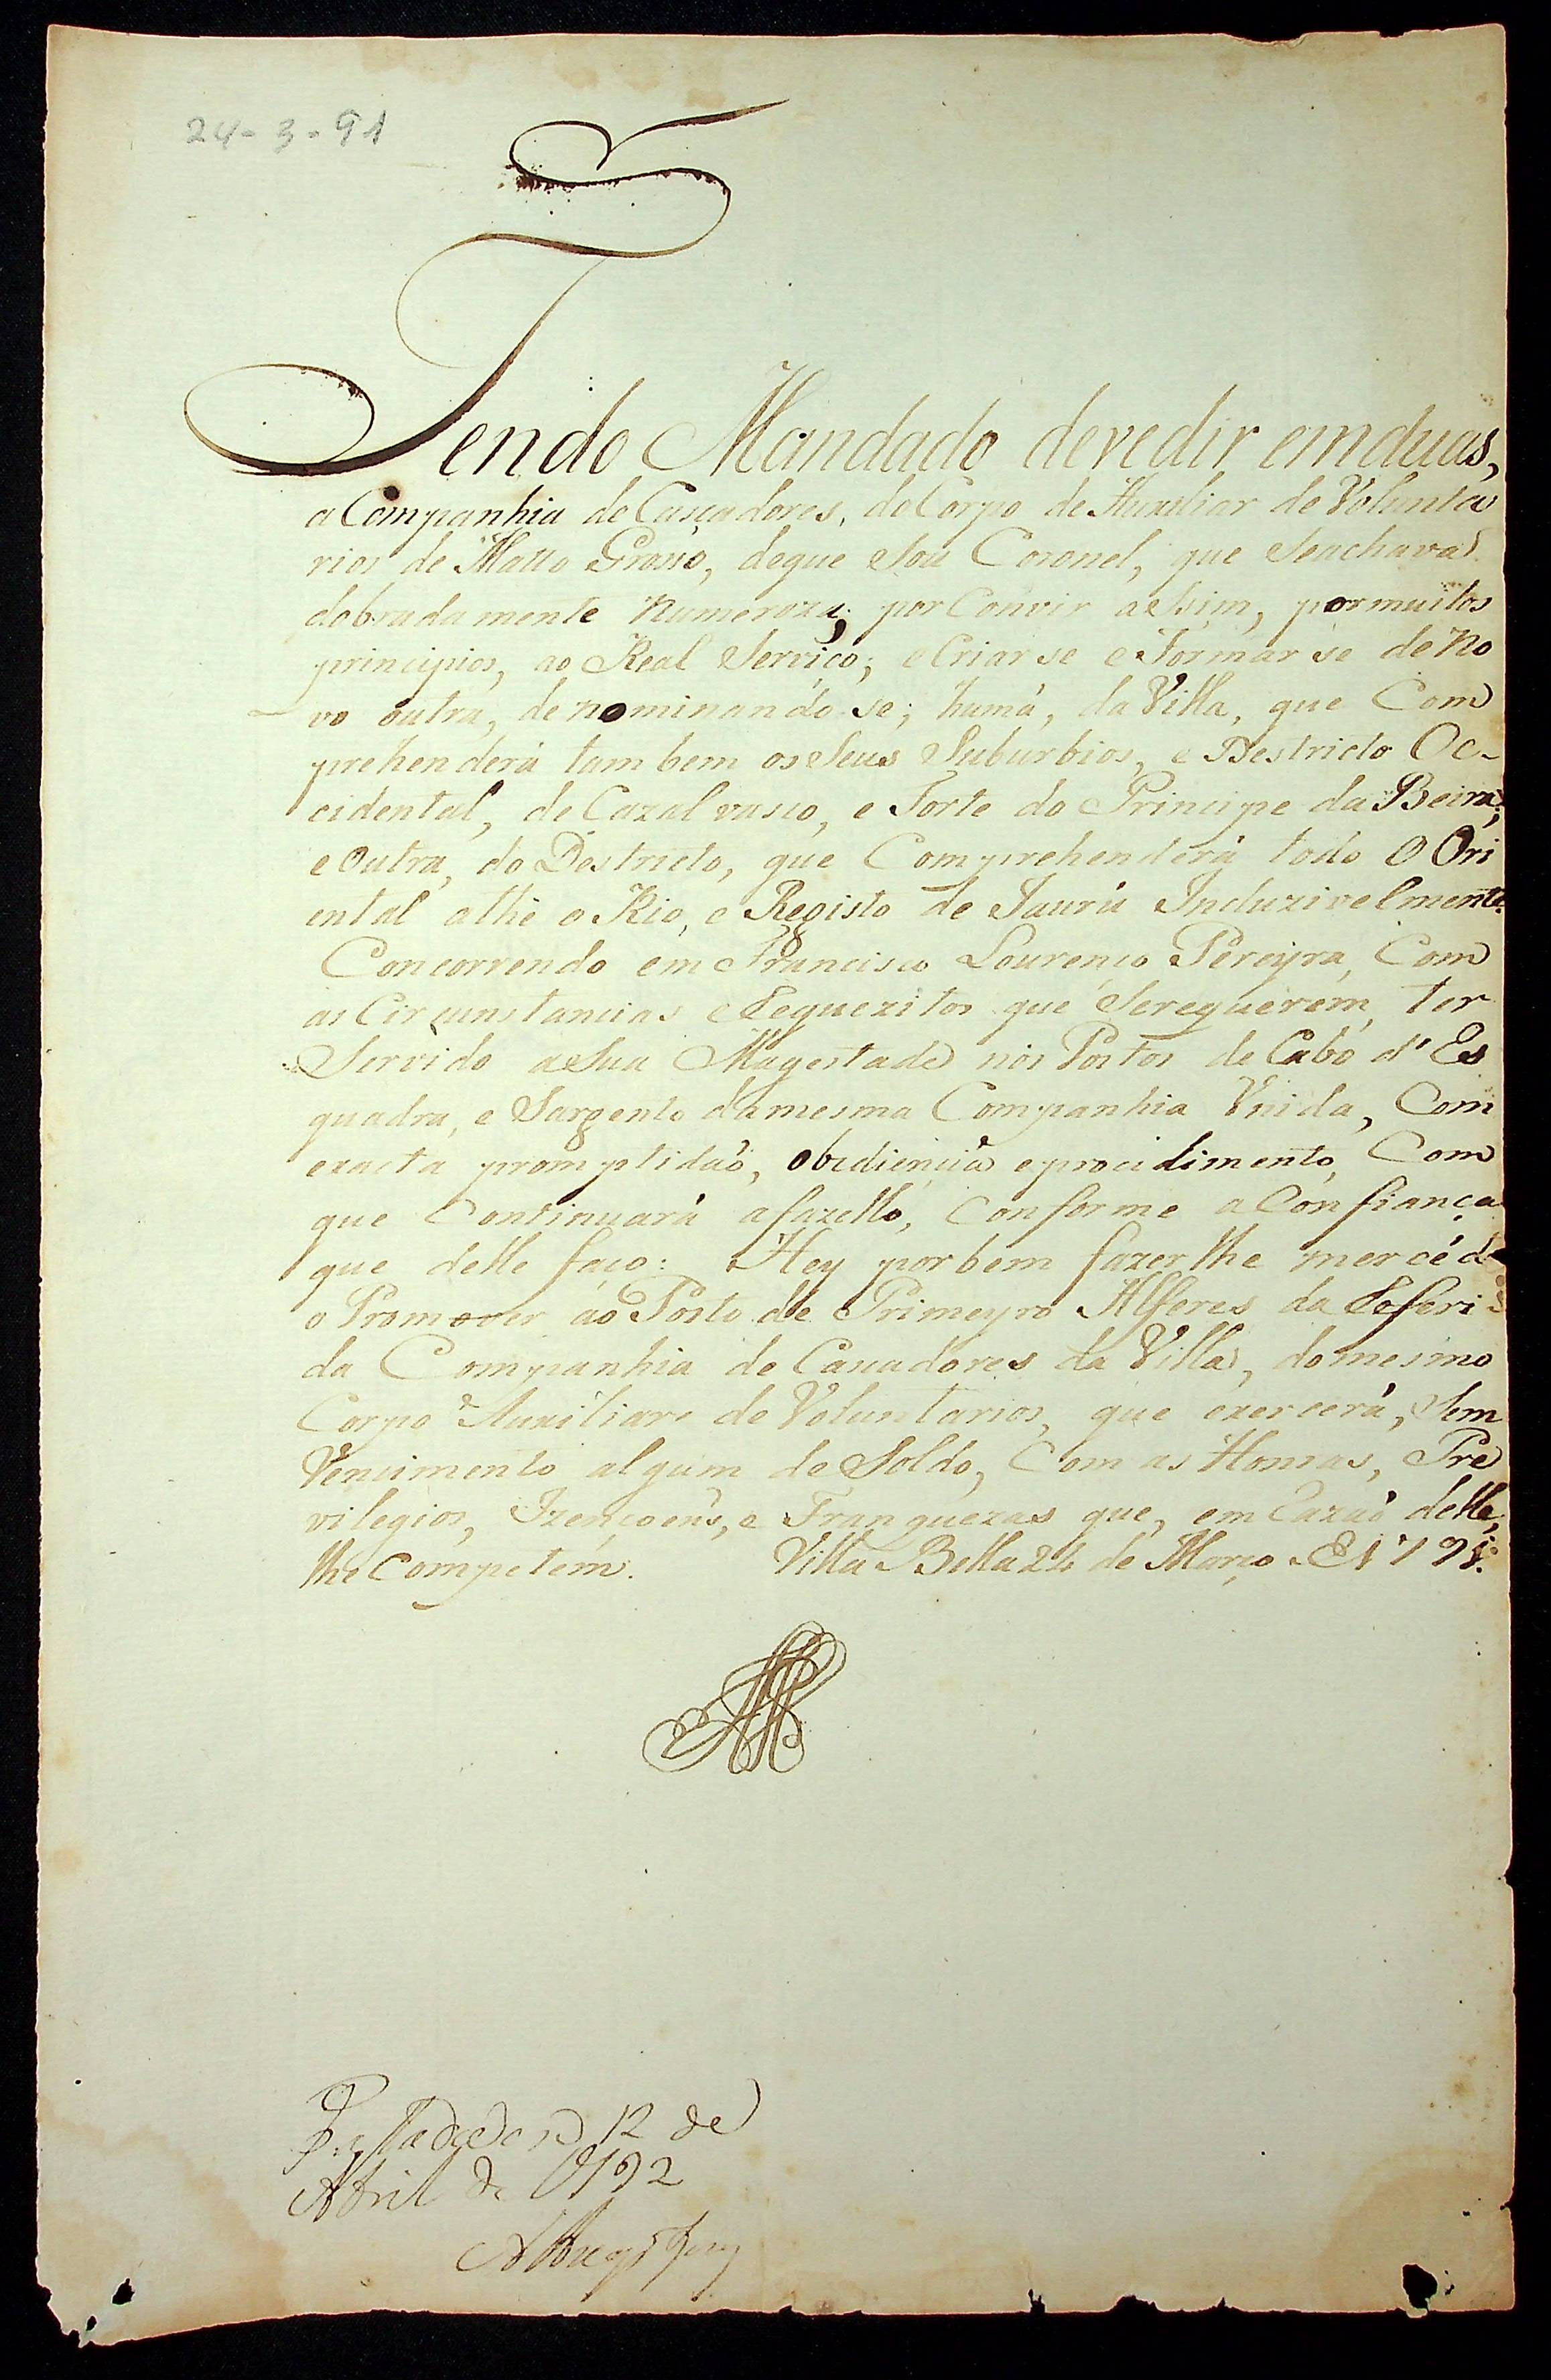 24-3-91
Tendo Mandado devedir em duas,
a Companhia de Cassadores, do Corpo de Auxiliar de Volunta
rios de Matto Grosso, de que Sou Coronel, que Se achava
dobrada mente Numeroza; por Convir assim, por muitos
principios, ao Real Serviço; e Criar se e Formar se de No
vo outra, de nominando-se; huma, da Villa, que Com
prehenderá tam bem os Seus Suburbios, e Destricto Oc-
cidental, de Cazal vasco, e Forte do Principe da Beira;
e Outra, do Destricto, que Comprehenderá todo O Ori
ental athé o Rio, e Registo de Jaurú Incluzivelmente.
Concorrendo em Francisco Lourenço Pereyra, Com
as Circunstancias e Requezitos que Se requerem, ter
Servido a Sua Magestade nos Postos de Cabo d'Es
quadra, e Sargento da mesma Companhia Vnida, Com
exacta promptidaõ, obediencia e procidimento, Com
que Continuará a fazello, Conforme a Confiança
que delle faço: Hey por bem fazer lhe mercê d
o Promover ao Posto de Primeyro Alferes da Referi
da Companhia de Cassadores da Villa, do mesmo
Corpo Auxiliar de Voluntarios, que exercerá, Sem
Vencimento algum de Soldo, Com as Honras, Pre
vilegios, Izençoens, e Franquezas que, em Razaõ delle,
lhe Competem. Villa Bella 24 de Março E 1791.
12 de
Abril de 1792